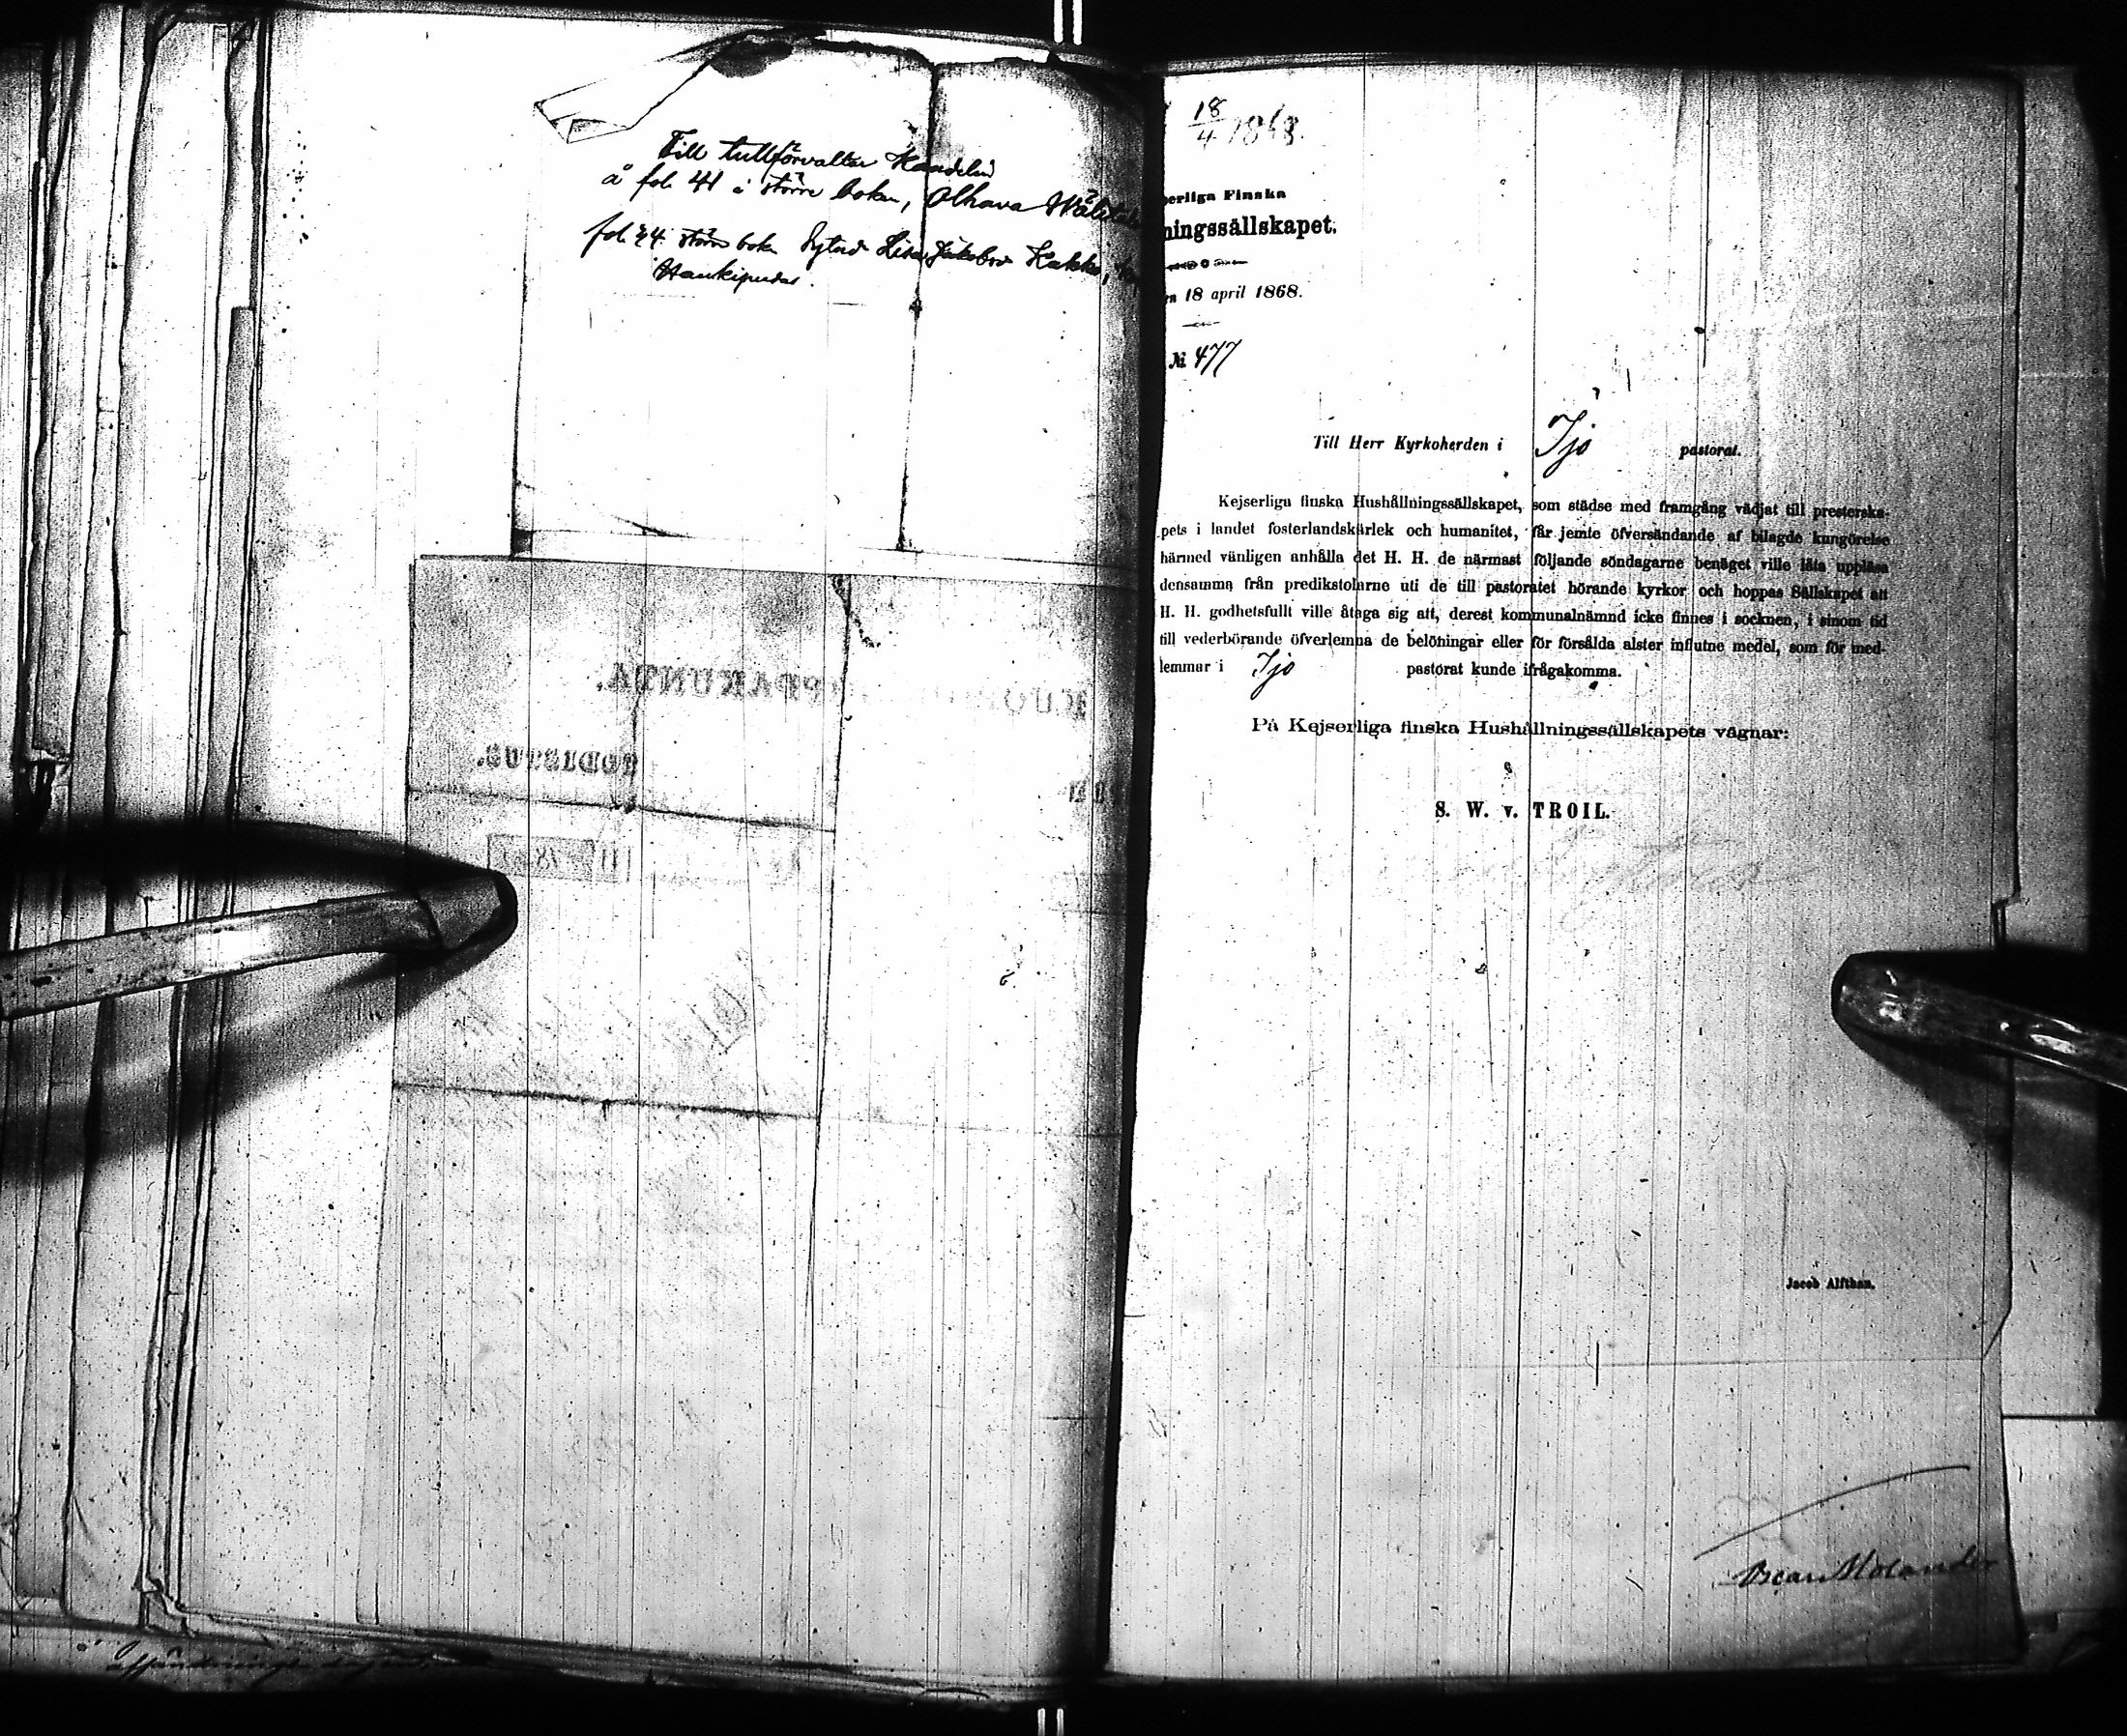 Till tullförvaltar Kandelin
å fol. 41 i större boken, Olhava
fol. 44 större boken Lisa Jakobsd. Kakko,
Haukipudas.
18/4 1868.
serliga Finska
ningssällskapet.
n 18 april 1868.
№ 477
Till Herr Kyrkoherden i Ijo pastorat.
Kejserliga finska Hushållningssällskapet, som städse med framgång vädjat till presterska-
pets i landet fosterlandskärlek och humanitet, får jemte öfversändande af bilagde kungörelse
härmed vänligen anhålla det H. H. de närmast följande söndagarne benäget ville låta uppläsa
densamma från predikstolarne uti de till pastoratet hörande kyrkor och hoppas Sällskapet att
H. H. godhetsfullt ville åtaga sig att, derest kommunalnämnd icke finnes i socknen, i sinom tid
till vederbörande öfverlemna de belöningar eller för försålda alster influtne medel, som för med-
lemmar i Ijo pastorat kunde ifrågakomma.
På Kejserliga finska Hushållningssällskapets vägnar:
S. W. v. TROIL.
Jacob Alfthan.
Oscar Molander